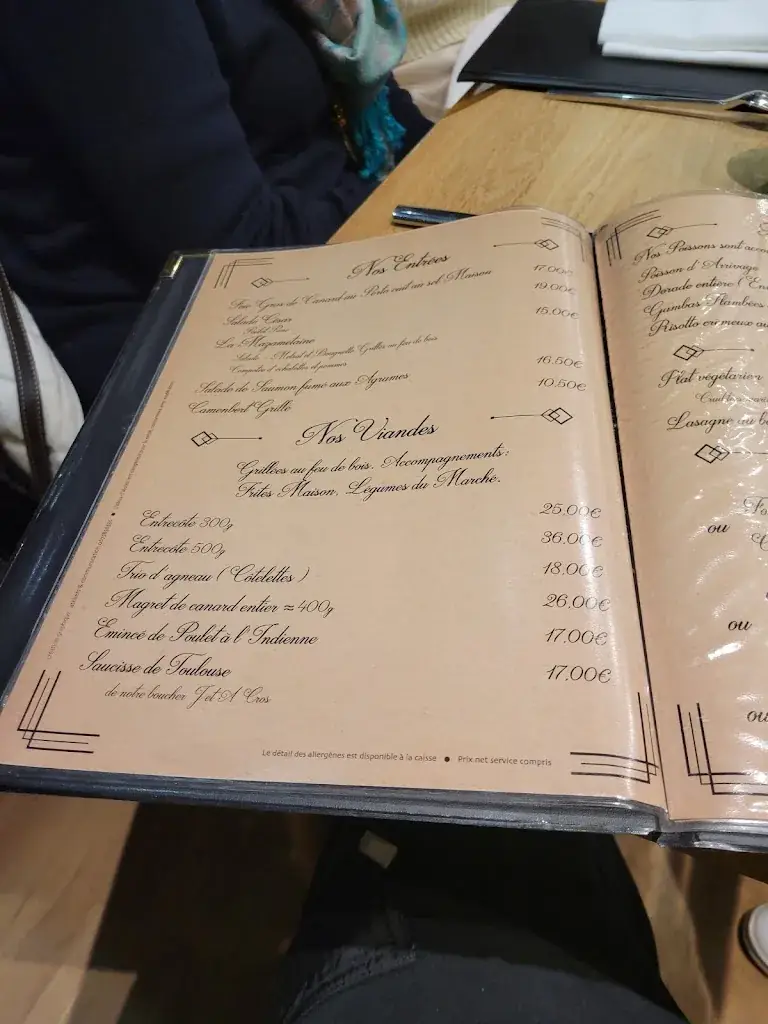 Nos Entrées
Foie Gras de Canard au Porto cuit au sel Maison 17.00€
Salade César 19.00€
La Mazametaine 15.00€
Salade de Saumon fumé aux Agrumes 16.50€
Camembert Grillé 10.50€
Nos Viandes
Grillées au feu de bois. Accompagnements :
Frites Maison, Légumes du Marché.
Entrecôte 300g 25.00€
Entrecôte 500g 36.00€
Trio d'agneau ( Côtelettes ) 18.00€
Magret de canard entier ≈ 400g 26.00€
Emincé de Poulet à l'Indienne 17.00€
Saucisse de Toulouse 17.00€
de notre boucher J et A Cros
Le détail des allergènes est disponible à la caisse • Prix net service compris
Nos Poissons sont
Poisson d'Arrivage
Dorade entière
Gambas flambées
Risotto crémeux au
Plat végétarien
Lasagne au
ou
ou
ou